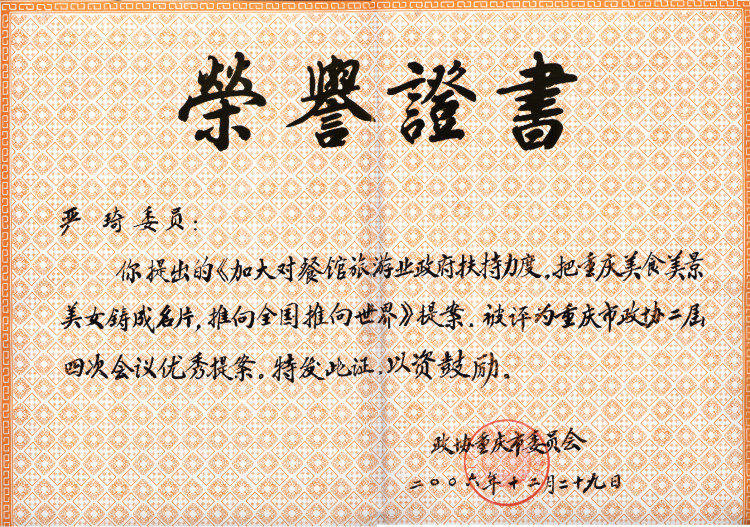 榮譽證書
严琦委员:
你提出的《加大对餐馆旅游业政府扶持力度,把重庆美食美景
美女铸成名片,推向全国推向世界》提案,被评为重庆市政协二届
四次会议优秀提案。特发此证,以资鼓励。
政协重庆市委员会
二〇〇六年十二月二十九日